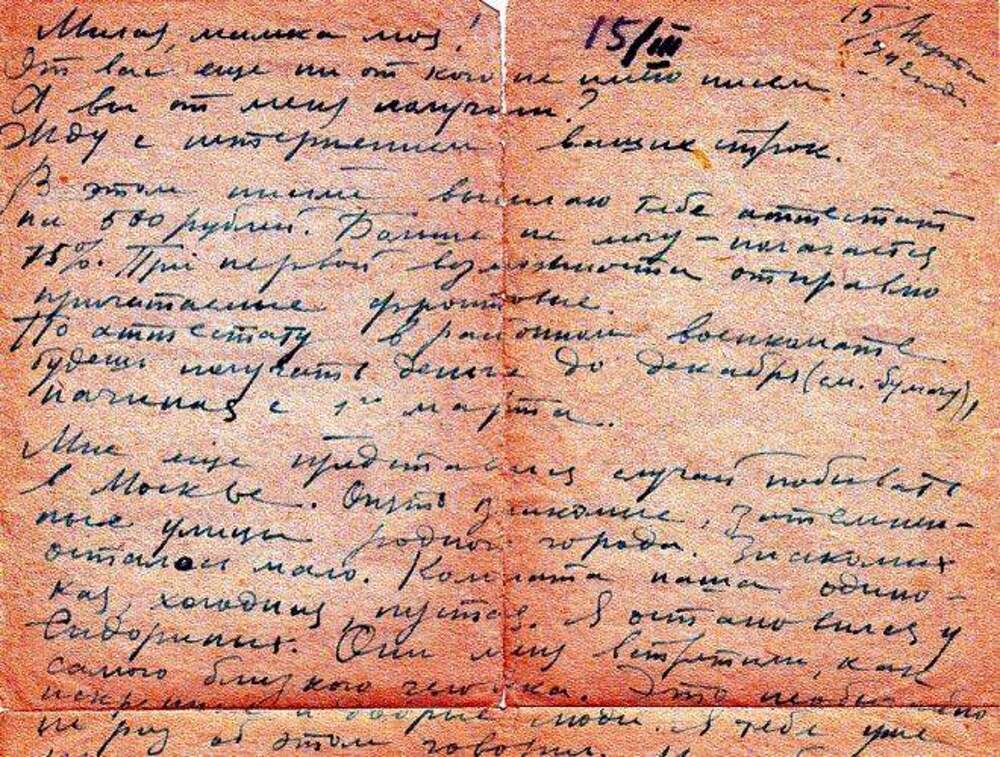 Милая, мамка моя!
15/III
15/Марта
942 года
От вас еще ни от кого не имею писем.
А вы от меня получили?
Жду с нетерпением ваших строк.
В этом письме высылаю тебе аттестат
на 500 рублей. Больше не могу – полагается
75%. При первой возможности отправлю
причитаемые фронтовые.
По аттестату в районном военкомате
будешь получать деньги до декабря (см. бумагу),
начиная с 1го марта.
Мне еще представился случай побывать
в Москве. Опять знакомые, затемнен-
ные улицы родного города. Знакомых
осталось мало. Комната наша одино-
кая, холодная, пустая. Я остановился у
Сидориных. Они меня встретили, как
самого близкого человека. Это необычайно
искренние и добрые люди. Я тебе уже
не раз об этом говорил.